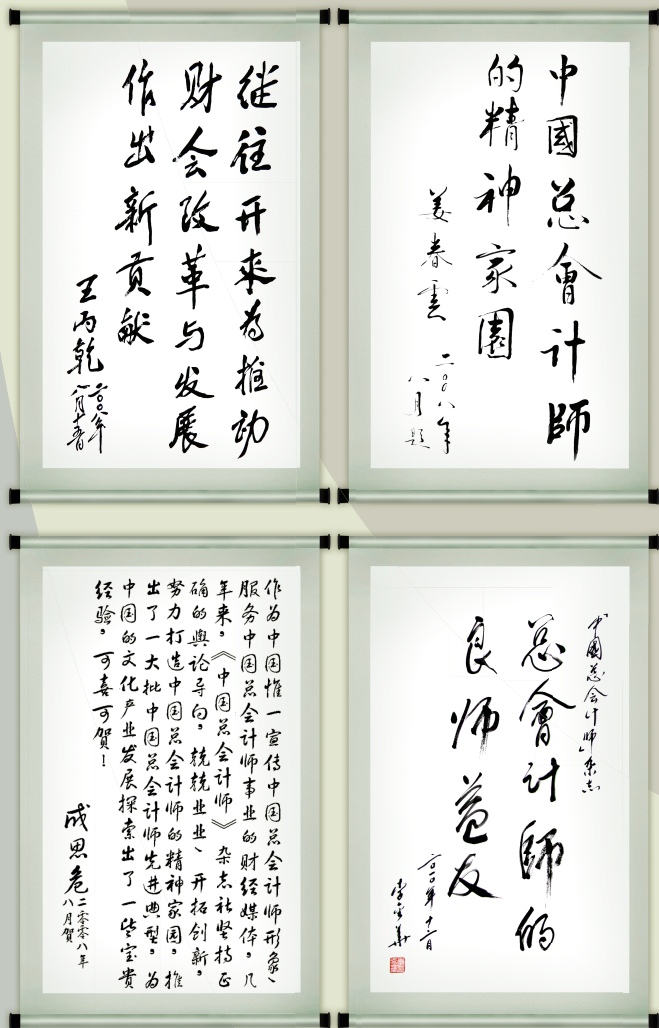 继往开来为推动
财会改革与发展
作出新贡献
王丙乾
二〇〇八年
八月
中國总會计師
的精神家園
姜春雲
二〇〇八年
八月題
作为中国惟一宣传中国总会计师形象、
服务中国总会计师事业的财经媒体，几
年来，《中国总会计师》杂志社坚持正
确的舆论导向，兢兢业业、开拓创新，
努力打造中国总会计师的精神家园，推
出了一大批中国总会计师先进典型，为
中国的文化产业发展探索出了一些宝贵
经验，可喜可賀！
成思危
二零零八年
八月賀
《中國总会计师》杂志
总會计師的
良师益友
李金華